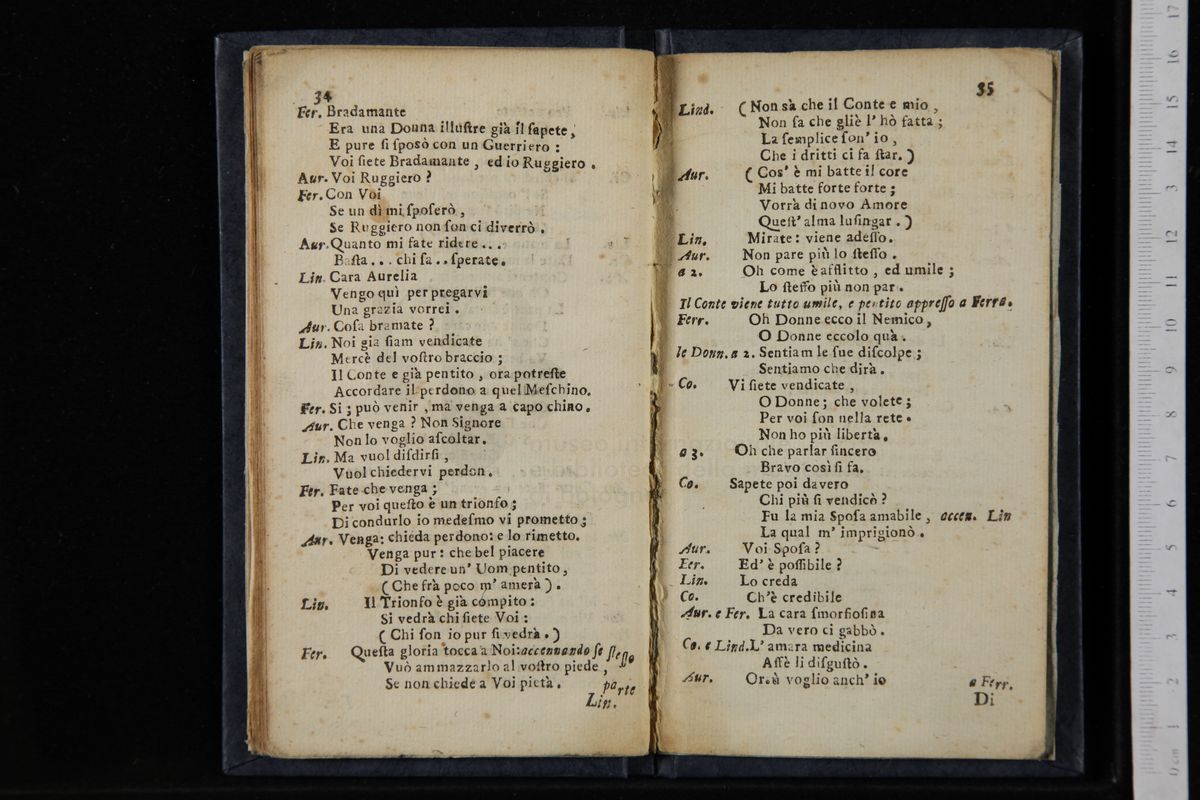 34
Fer. Bradamante
Era una Donna illuſtre già il ſapete,
E pure ſi ſposò con un Guerriero :
Voi ſiete Bradamante , ed io Ruggiero .
Aur. Voi Ruggiero ?
Fer. Con Voi
Se un dì mi ſpoſerò ,
Se Ruggiero non ſon ci diverrò .
Aur. Quanto mi fate ridere . . .
Baſta . . . chi ſa . . ſperate.
Lin. Cara Aurelia
Vengo quì per pregarvi
Una grazia vorrei .
Aur. Coſa bramate ?
Lin. Noi gia ſiam vendicate
Mercè del voſtro braccio ;
Il Conte e già pentito , ora potreſte
Accordare il perdono a quel Meſchino.
Fer. Si ; può venir , ma venga a capo chino .
Aur. Che venga ? Non Signore
Non lo voglio aſcoltar.
Lin. Ma vuol diſdirſi ,
Vuol chiedervi perdon .
Fer. Fate che venga ;
Per voi queſto è un trionfo ;
Di condurlo io medeſmo vi prometto ;
Aur. Venga: chieda perdono: e lo rimetto.
Venga pur : che bel piacere
Di vedere un' Uom pentito ,
( Che frà poco m' amerà ) .
Lin. Il Trionfo è già compito :
Si vedrà chi ſiete Voi :
( Chi ſon io pur ſi vedrà . )
Fer. Queſta gloria tocca a Noi: accennando ſe ſteſſo
Vuò ammazzarlo al voſtro piede ,
Se non chiede a Voi pietà . parte
Lin.
35
Lind. ( Non sà che il Conte e mio ,
Non ſa che gliè l' hò fatta ;
La ſemplice ſon' io ,
Che i dritti ci fa ſtar. )
Aur. ( Cos' è mi batte il core
Mi batte forte forte ;
Vorrà di novo Amore
Queſt' alma luſingar . )
Lin. Mirate : viene adeſſo.
Aur. Non pare più lo ſteſſo .
a 2. Oh come è afflitto , ed umile ;
Lo ſteſſo più non par .
Il Conte viene tutto umile, e pentito appreſſo a Ferra.
Ferr. Oh Donne ecco il Nemico,
O Donne eccolo quà .
le Donn. a 2. Sentiam le ſue diſcolpe ;
Sentiamo che dirà .
Co. Vi ſiete vendicate ,
O Donne ; che volete ;
Per voi ſon nella rete .
Non ho più libertà.
a 3. Oh che parlar ſincero
Bravo così ſi fa.
Co. Sapete poi davero
Chi più ſi vendicò ?
Fu la mia Spoſa amabile , accen. Lin
La qual m' imprigionò .
Aur. Voi Spoſa ?
Fer. Ed' è poſſibile ?
Lin. Lo creda
Co. Ch'è credibile
Aur. e Fer. La cara ſmorfioſina
Da vero ci gabbò .
Co. e Lind. L' amara medicina
Affè li diſguſtò .
Aur. Orsù voglio anch' io a Ferr.
Di